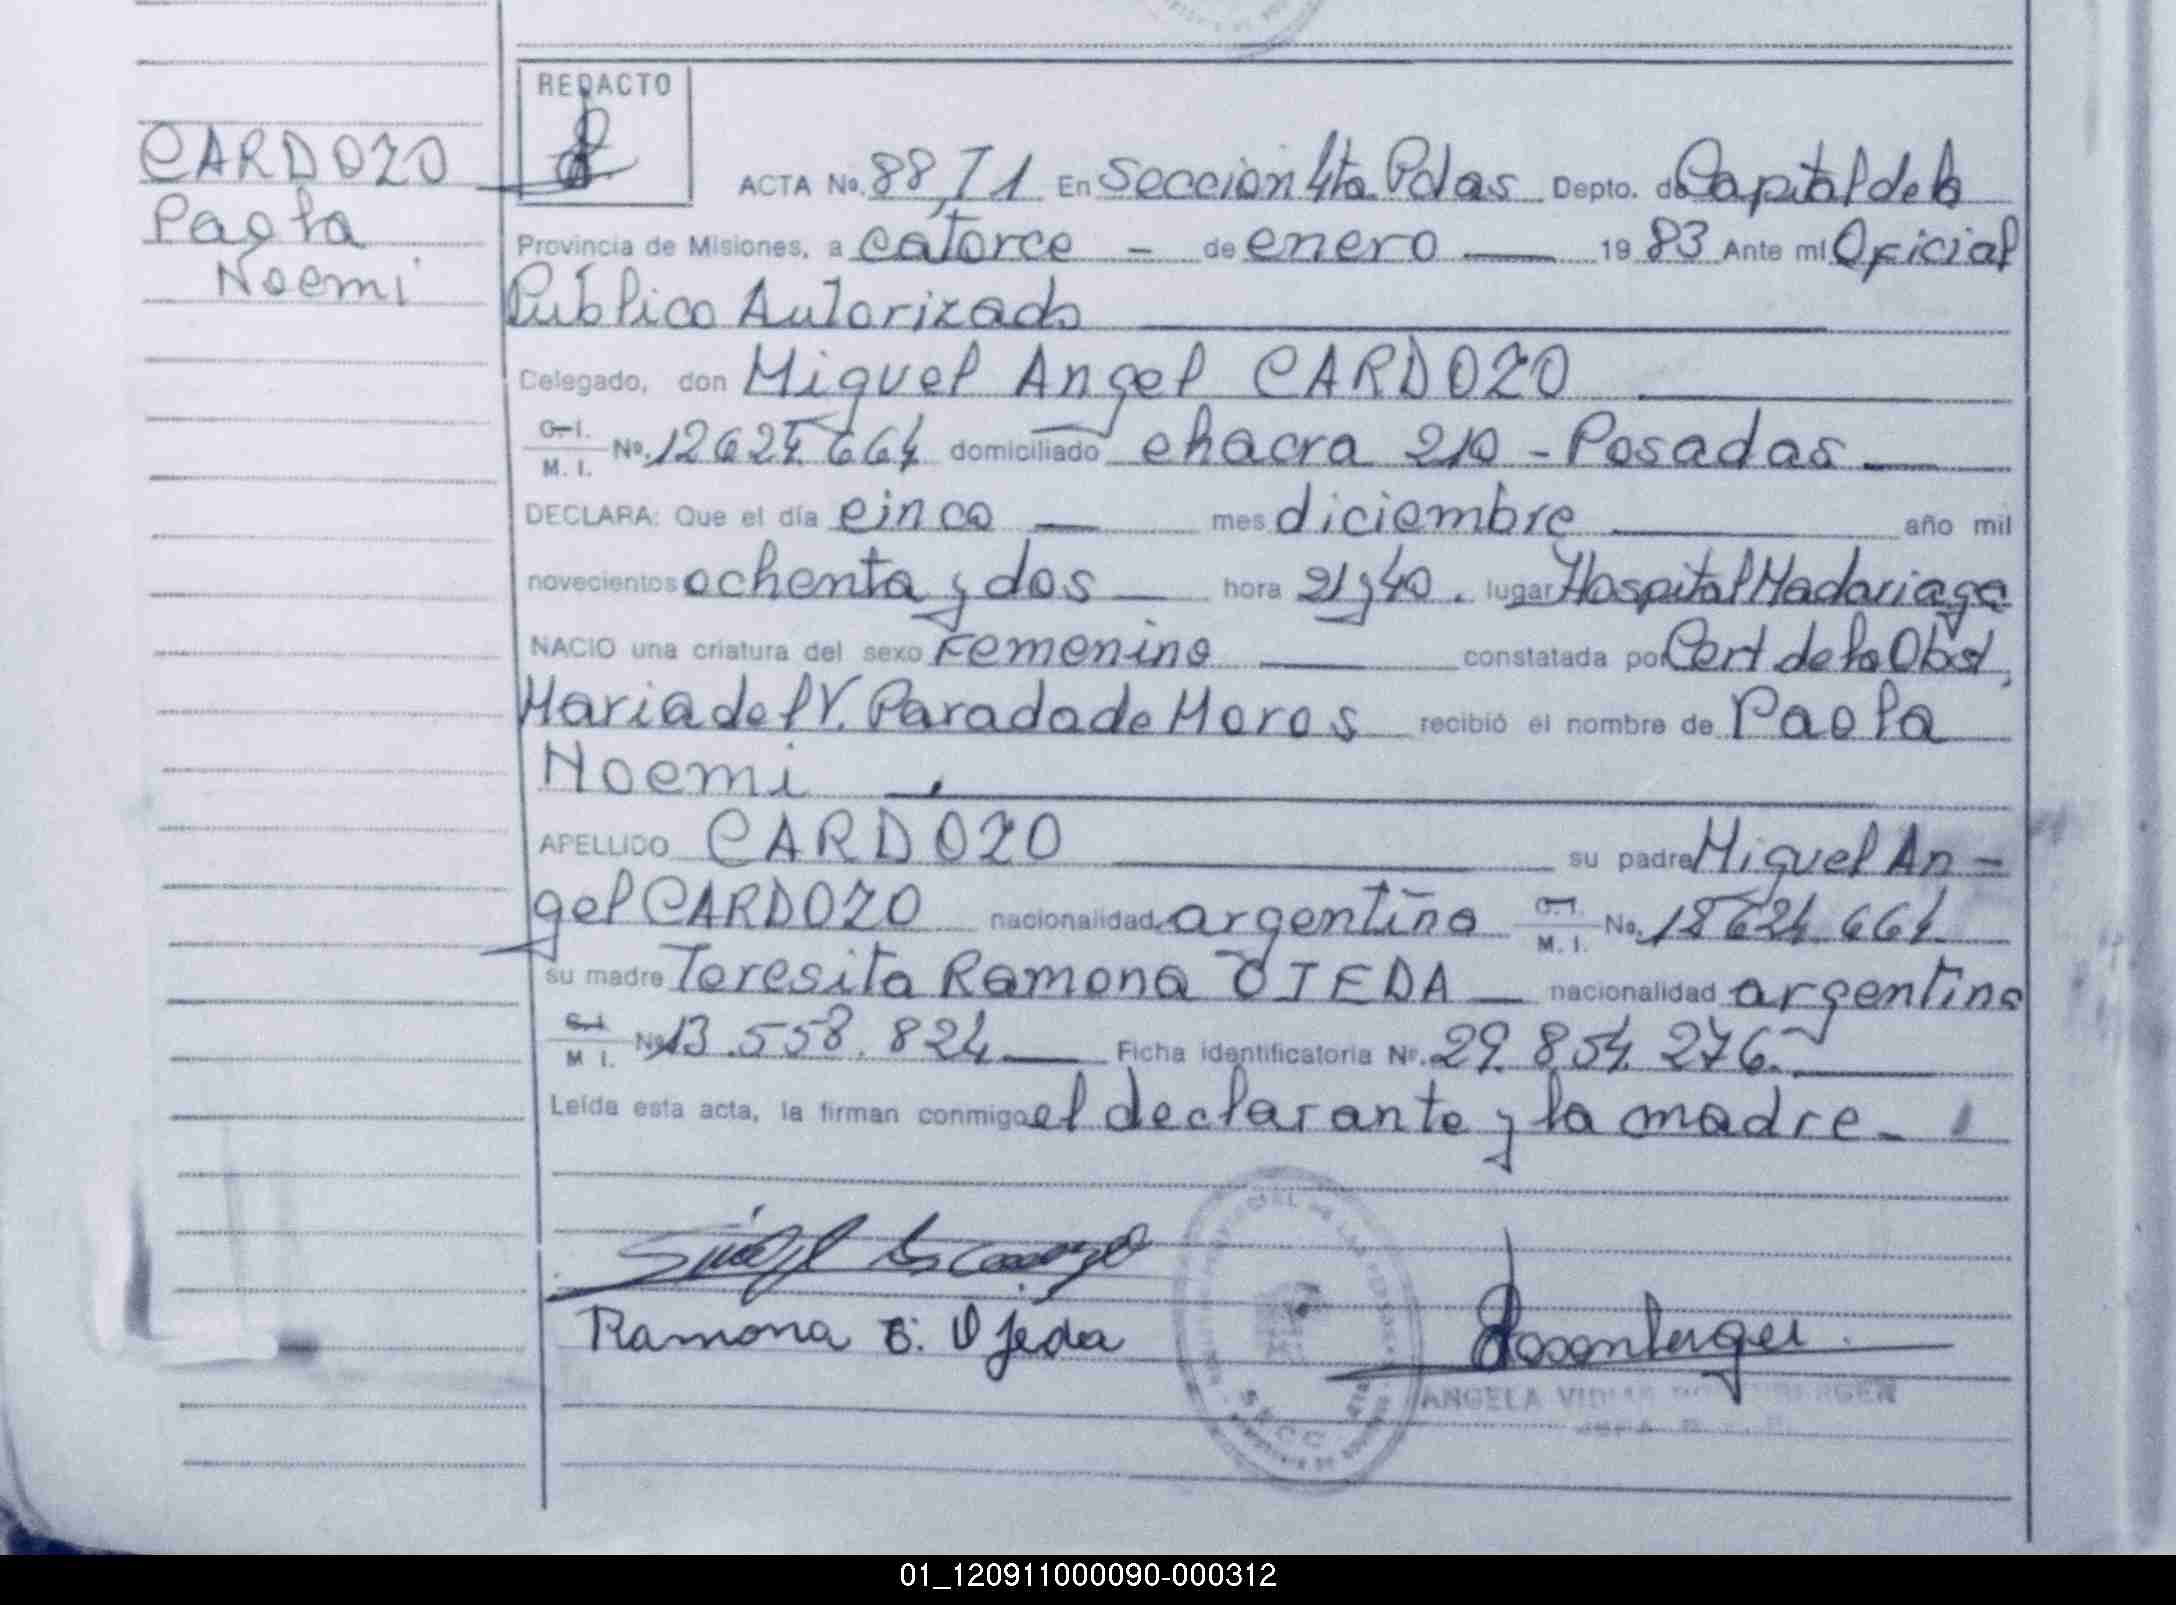 REDACTO
CARDOZO
Paola
Noemi
ACTA No. 88, T1 En Sección 4ta Pdas Depto. de Capital de la
Provincia de Misiones, a catorce - de enero — 19 83 Ante mí Oficial
Público Autorizado
Delegado, don Miguel Angel CARDOZO
C. I. M. I. No. 12 624 664 domiciliado chacra 210 - Posadas —
DECLARA: Que el día cinco — mes diciembre — año mil
novecientos ochenta y dos — hora 21 y 40. lugar Hospital Madariaga
NACIO una criatura del sexo Femenino — constatada por Cert de la Obst,
Maria del V. Parada de Moros recibió el nombre de Paola
Noemi
APELLIDO CARDOZO su padre Miguel An-
gel CARDOZO nacionalidad argentino C. I. M. I. No. 624 664
su madre Teresita Ramona OJEDA — nacionalidad argentina
C. I. M. I. No. 13.558.824 — Ficha identificatoria No. 29.854.276.
Leída esta acta, la firman conmigo el declarante y la madre -
Ramona T. Ojeda
Rosenberger
ANGELA
S.R.C.C.
01_120911000090-000312